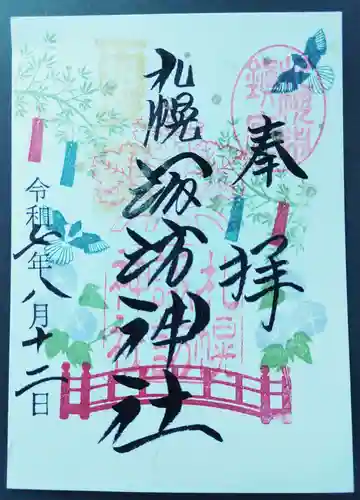 奉拝
札幌諏訪神社
令和七年八月十二日